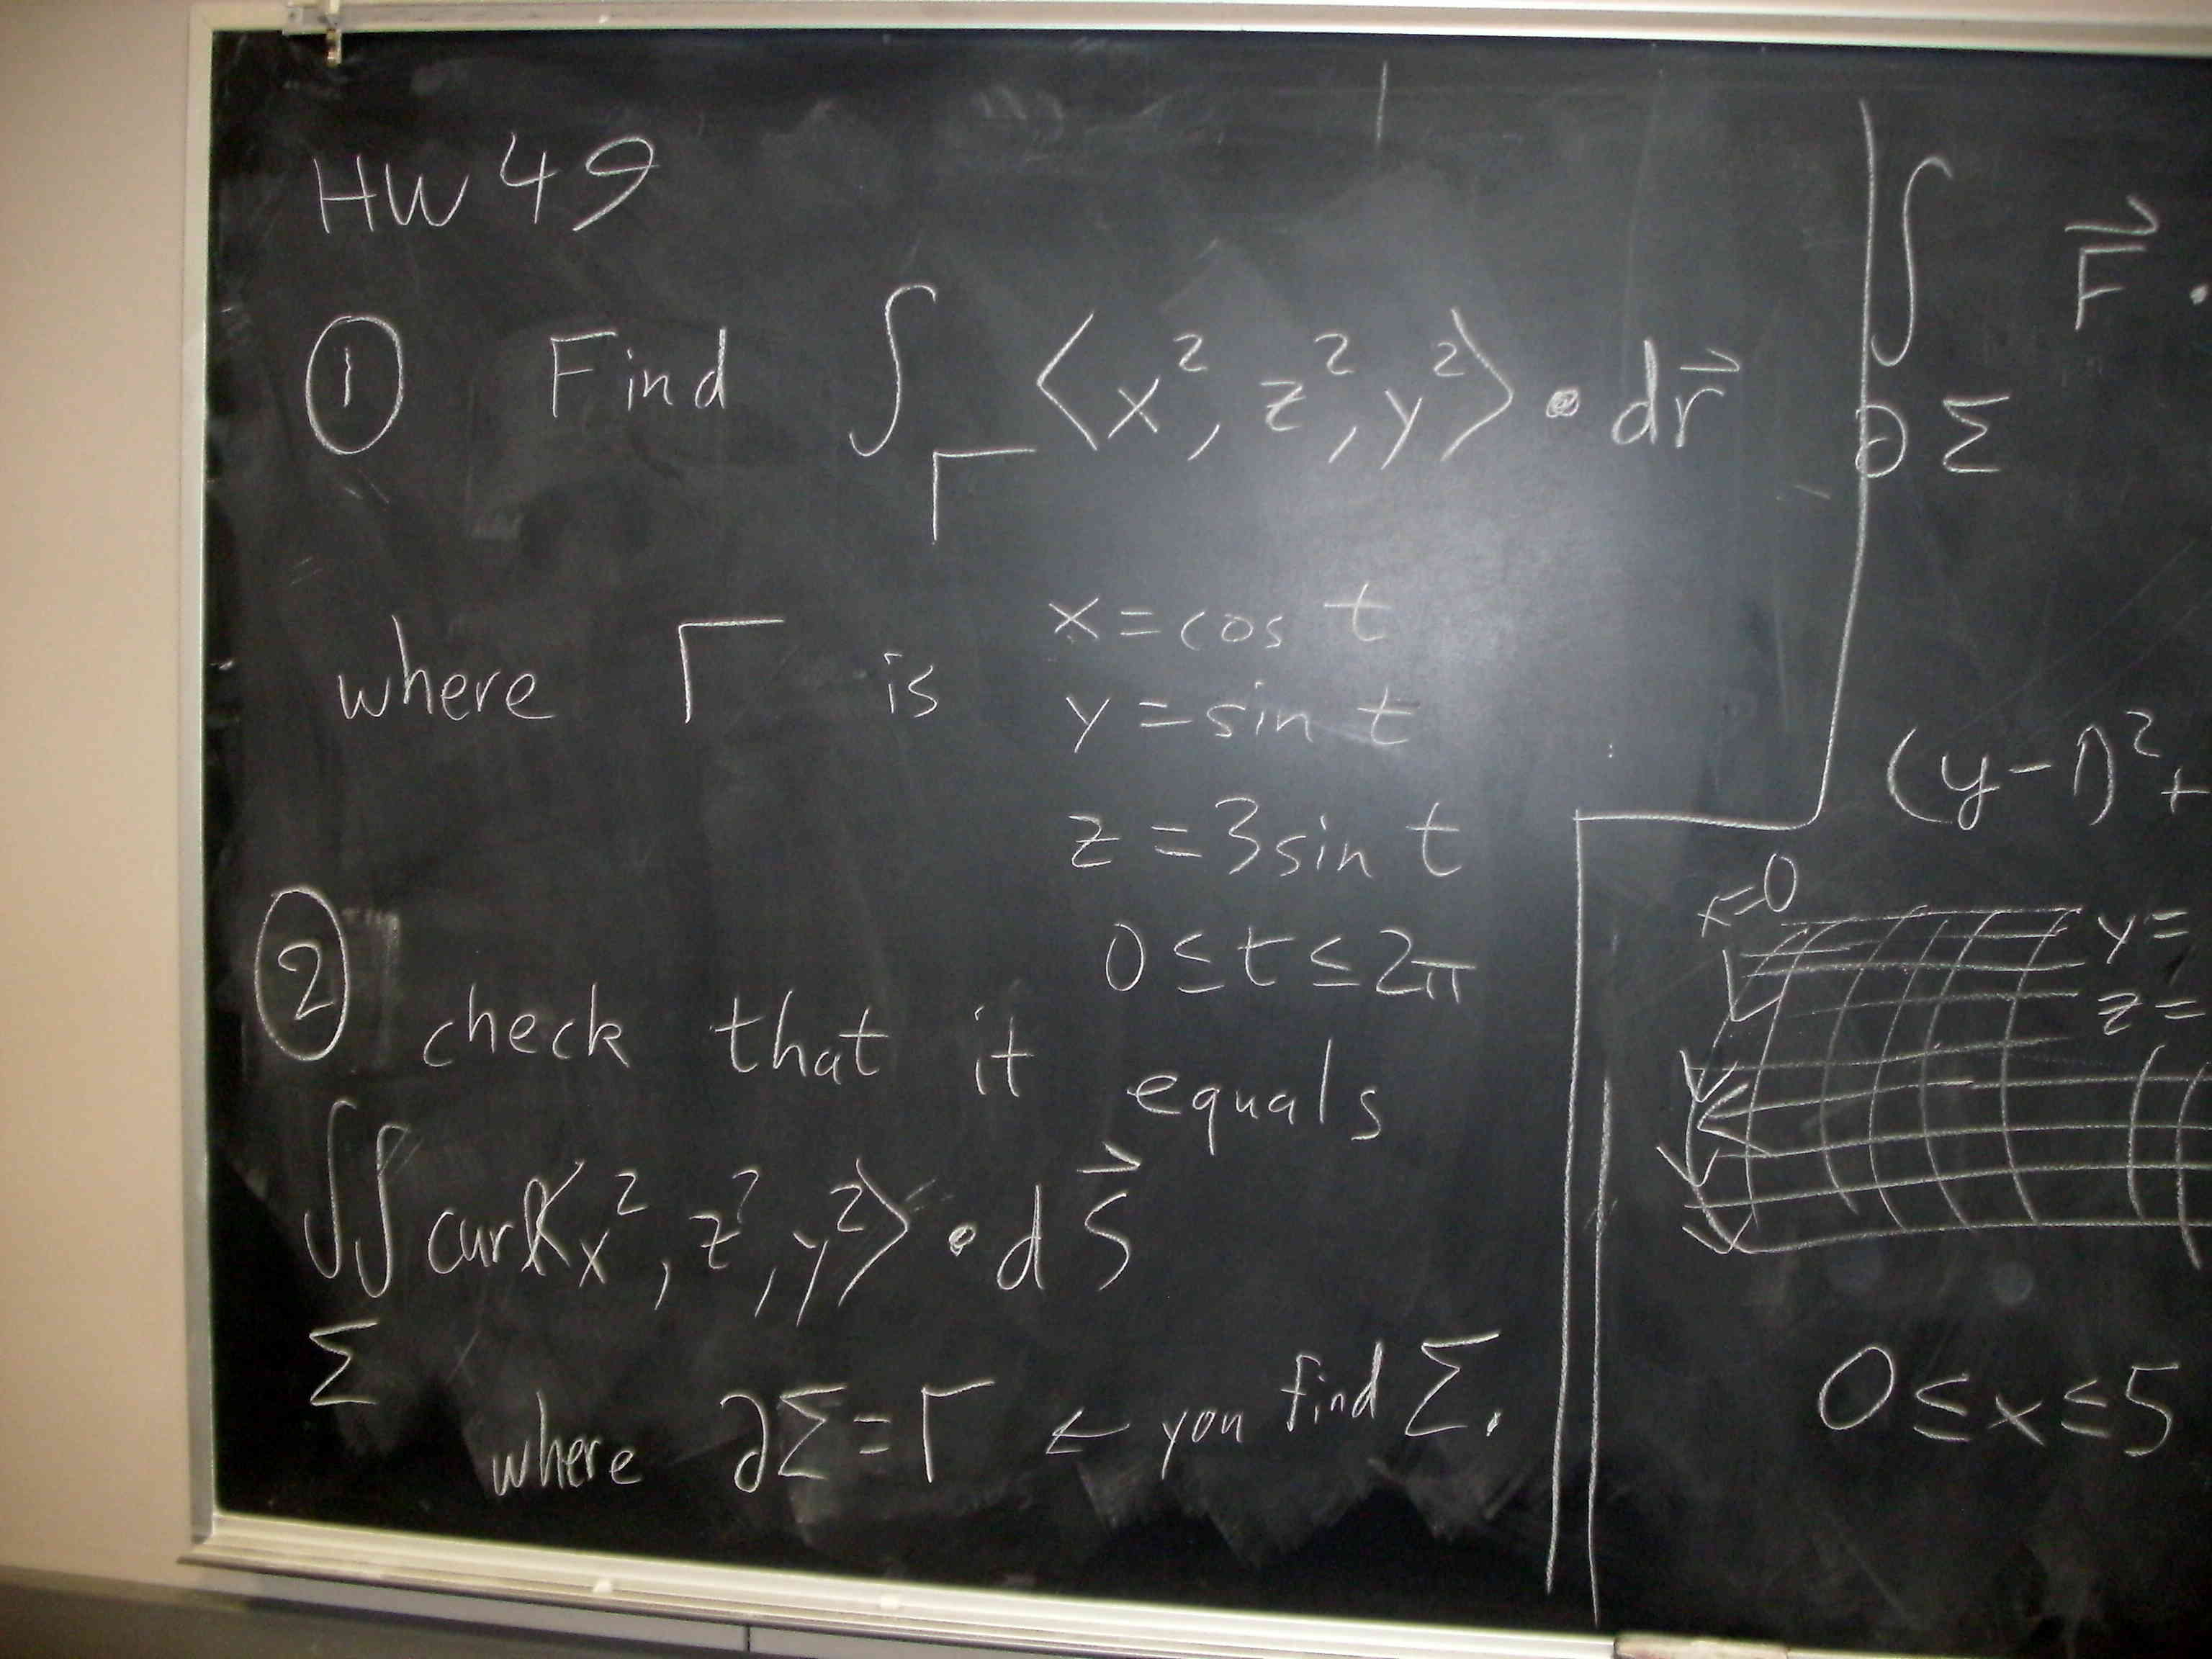 HW 49
① Find ∫_Γ ⟨x², z², y²⟩ • dr⃗
where Γ is x = cos t
y = sin t
z = 3 sin t
0 ≤ t ≤ 2π
② check that it equals
∬_Σ curl⟨x², z², y²⟩ • dS⃗
where ∂Σ = Γ ← you find Σ.
∫_∂Σ F⃗ •
(y-1)² +
x=0
y =
z =
0 ≤ x ≤ 5